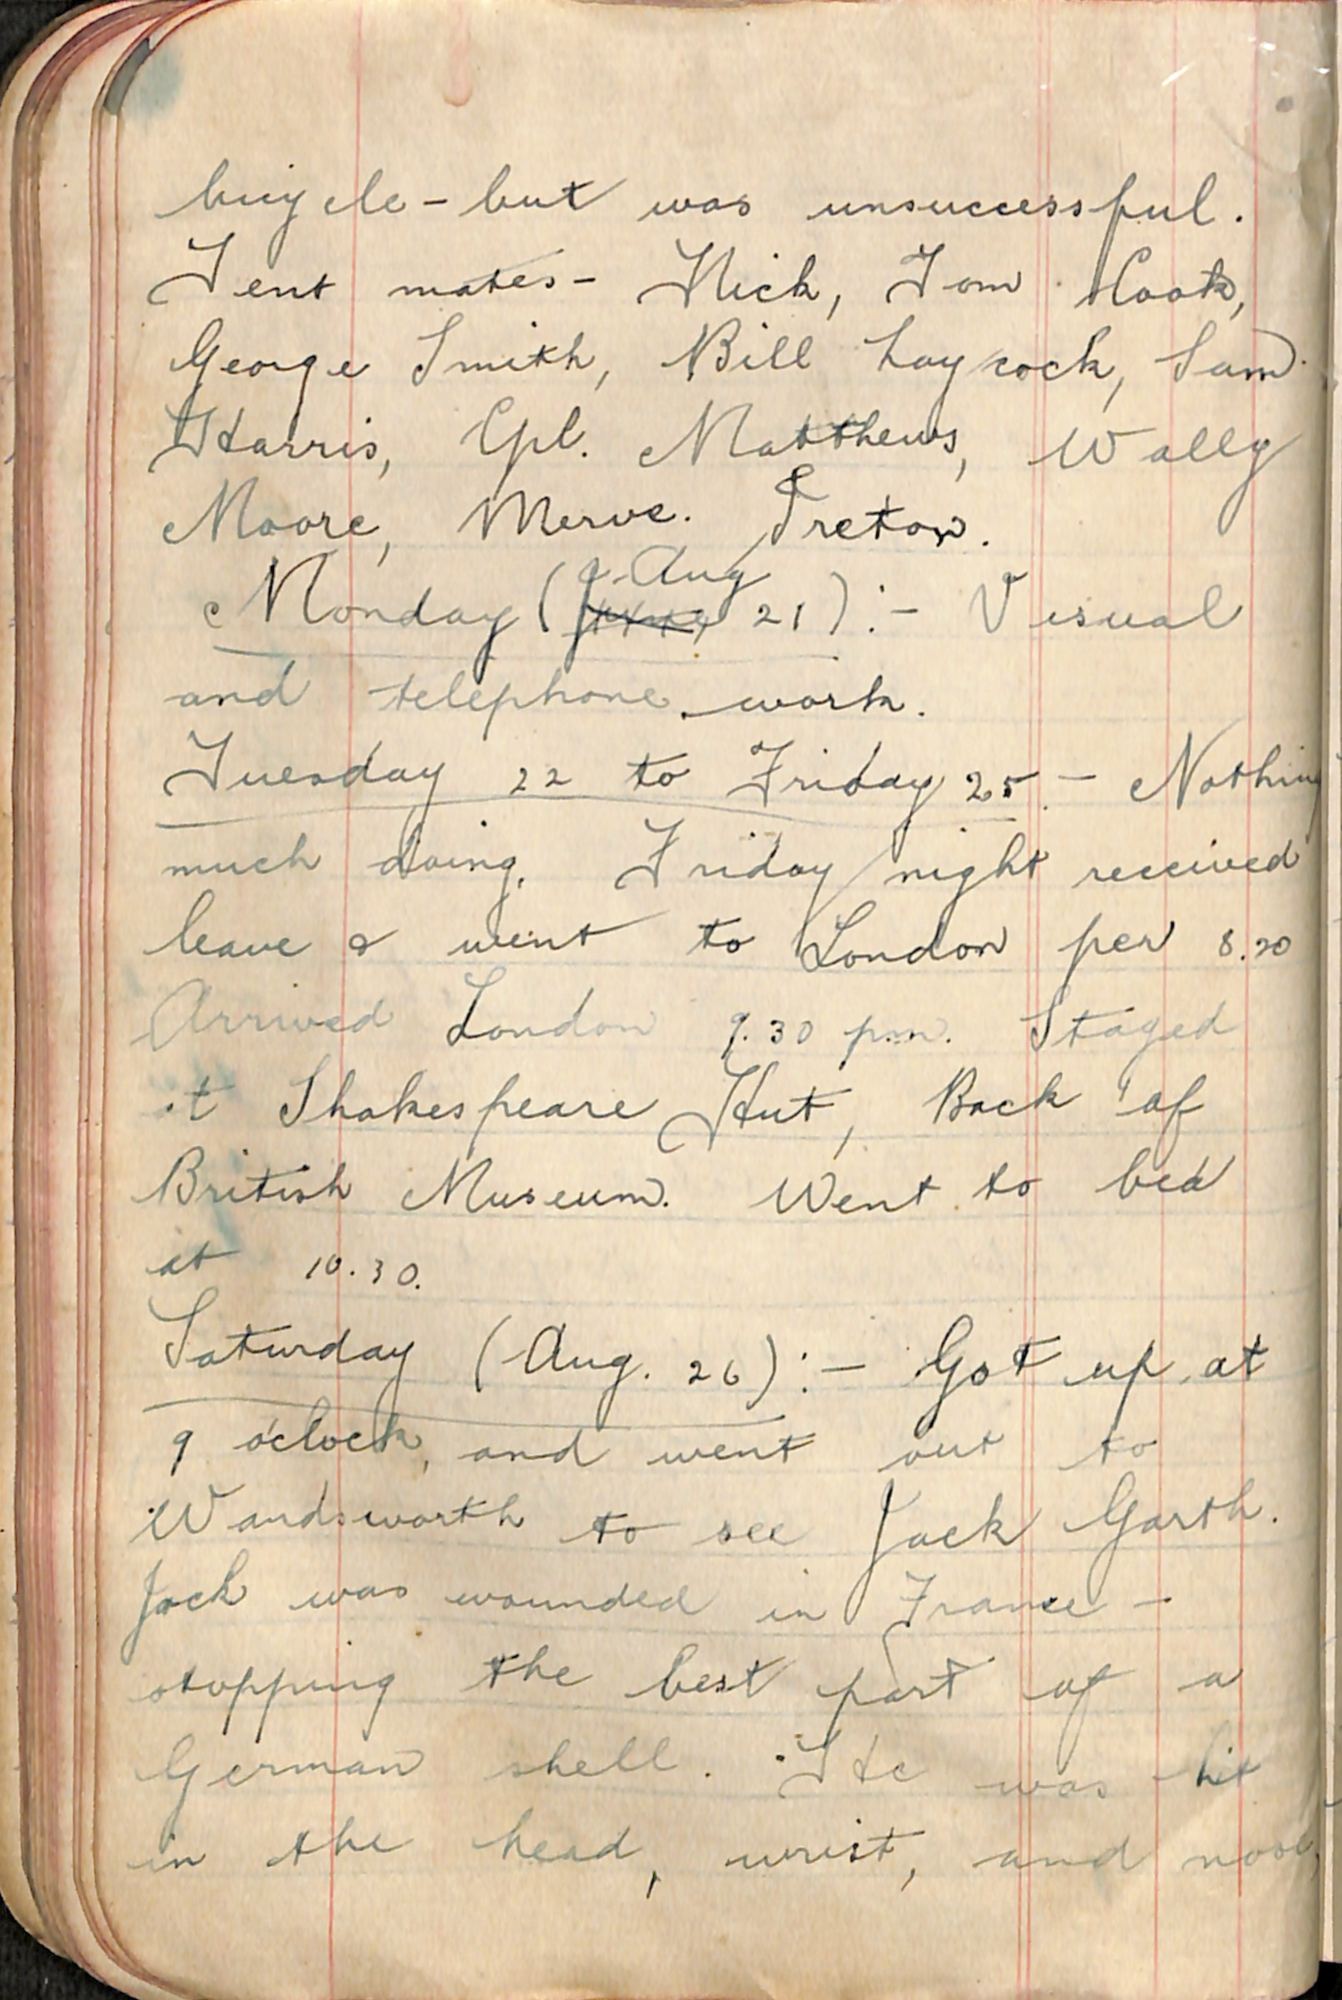 bicycle - but was unsuccessful.
Tent mates - Nick, Tom Cook,
George Smith, Bill Laycock, Sam
Harris, Cpl. Matthews, Wally
Moore, Merve. Treton.
Monday (Aug 21) :- Visual
and telephone work.
Tuesday 22 to Friday 25. - Nothing
much doing. Friday night received
leave & went to London per 8.20
Arrived London 9.30 p.m. Stayed
at Shakespeare Hut, Back of
British Museum. Went to bed
at 10.30.
Saturday (Aug. 26) :- Got up at
9 o'clock, and went out to
Wandsworth to see Jack Garth.
Jack was wounded in France -
stopping the best part of a
German shell. He was hit
in the head, wrist, and nose,